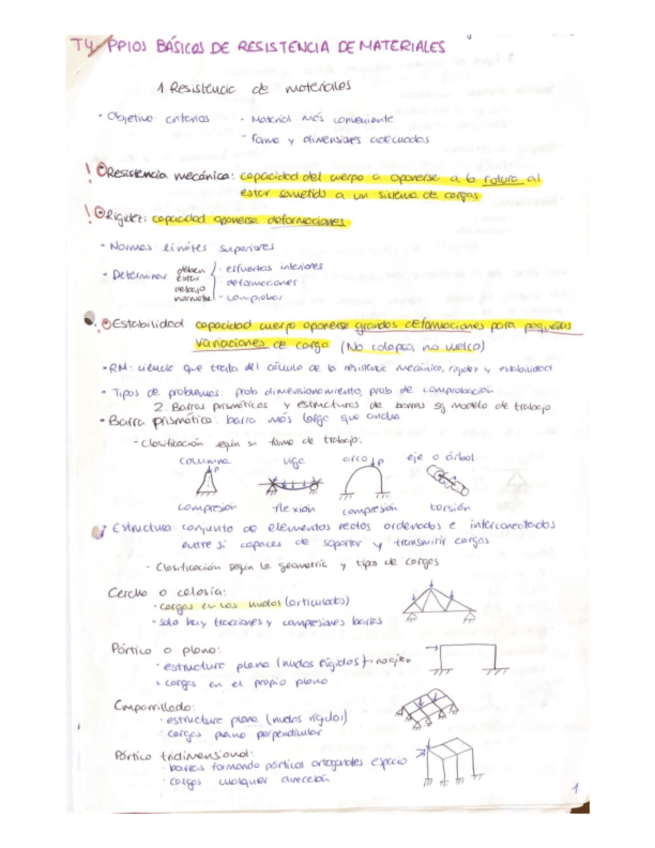 T4 PPIOS BÁSICOS DE RESISTENCIA DE MATERIALES
1. Resistencia de materiales
· Objetivo: criterios - Material más conveniente
- Forma y dimensiones adecuadas
! Resistencia mecánica: capacidad del cuerpo a oponerse a la rotura al
estar sometido a un sistema de cargas
! Rigidez: capacidad oponerse deformaciones
· Normas límites superiores
· Determinar deben estar debajo normativa
- esfuerzos interiores
- deformaciones
- comprobar
Estabilidad capacidad cuerpo oponerse grandes deformaciones para pequeñas
variaciones de carga (No colapso, no vuelco)
· RM: ciencia que trata del cálculo de la resistencia mecánica, rigidez y estabilidad
· Tipos de problemas: prob dimensionamiento, prob de comprobación
2. Barras prismáticas y estructuras de barras sg modelo de trabajo
· Barra prismática: barra más larga que ancha
- Clasificación según su forma de trabajo:
columna viga arco eje o árbol
P P
compresión flexión compresión torsión
Estructura: conjunto de elementos rectos ordenados e interconectados
entre sí capaces de soportar y transmitir cargas
- Clasificación según la geometría y tipo de cargas
Cercha o celosía:
· cargas en los nudos (articulados)
· solo hay tracciones y compresiones barras
Pórtico o plano:
· estructura plana (nudos rígidos) → no giran
· cargas en el propio plano
Emparrillado:
· estructura plana (nudos rígidos)
· cargas plano perpendicular
Pórtico tridimensional:
· barras formando pórticos ortogonales espacio
· cargas cualquier dirección
1